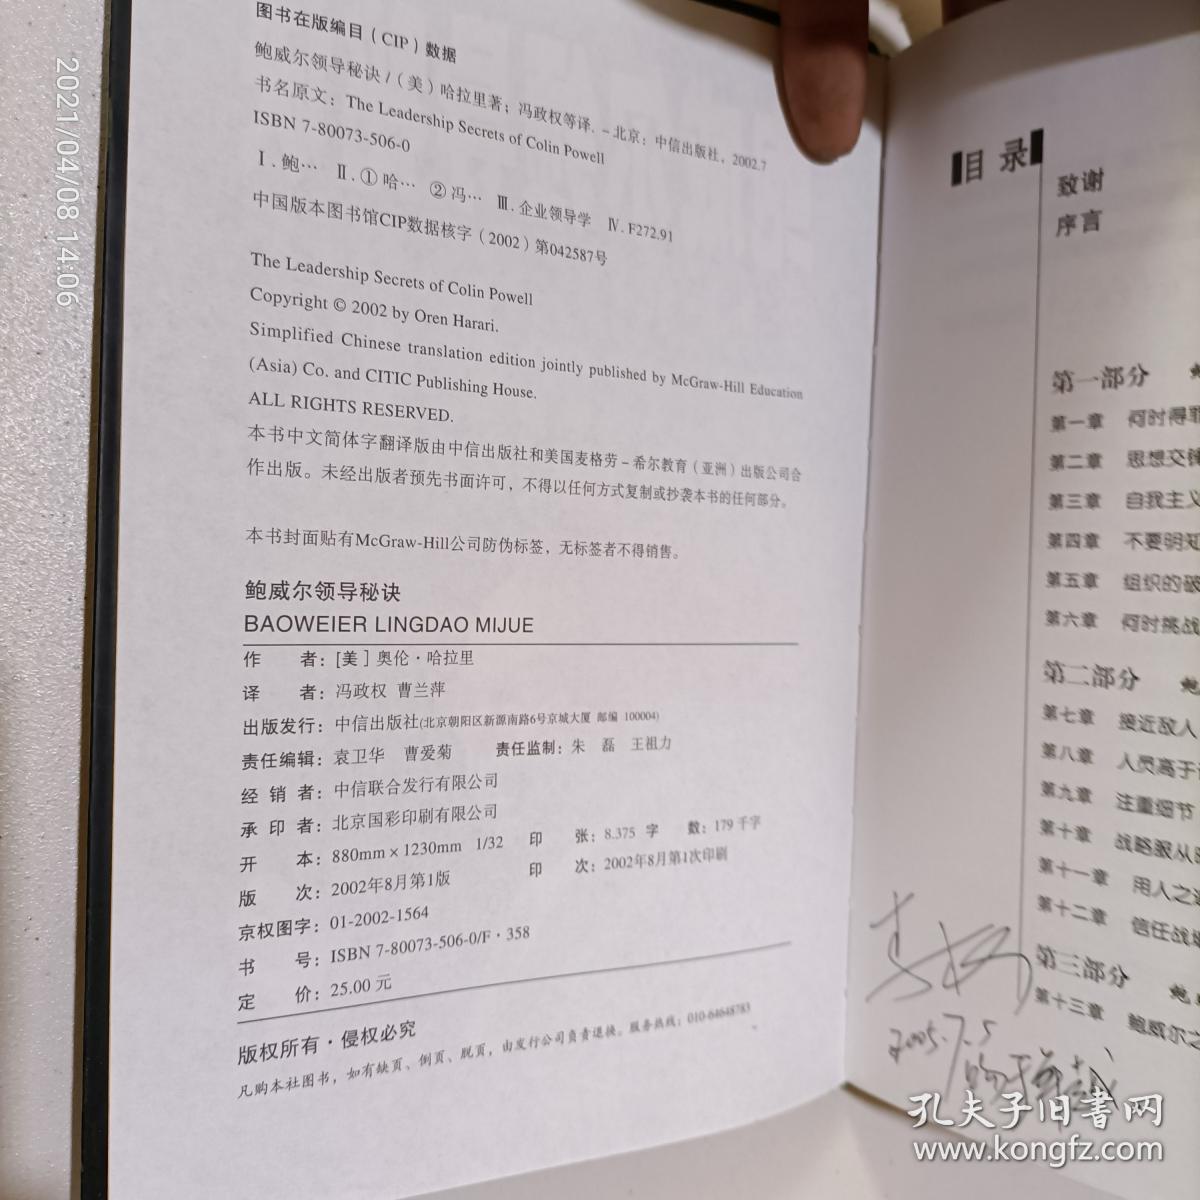 2021/04/08 14:06
图书在版编目（CIP）数据
鲍威尔领导秘诀/（美）哈拉里著；冯政权等译.－北京：中信出版社，2002.7
书名原文：The Leadership Secrets of Colin Powell
ISBN 7-80073-506-0
Ⅰ.鲍… Ⅱ.①哈… ②冯… Ⅲ.企业领导学 Ⅳ.F272.91
中国版本图书馆CIP数据核字（2002）第042587号
The Leadership Secrets of Colin Powell
Copyright © 2002 by Oren Harari.
Simplified Chinese translation edition jointly published by McGraw-Hill Education
(Asia) Co. and CITIC Publishing House.
ALL RIGHTS RESERVED.
本书中文简体字翻译版由中信出版社和美国麦格劳－希尔教育（亚洲）出版公司合
作出版。未经出版者预先书面许可，不得以任何方式复制或抄袭本书的任何部分。
本书封面贴有McGraw-Hill公司防伪标签，无标签者不得销售。
鲍威尔领导秘诀
BAOWEIER LINGDAO MIJUE
作 者：［美］奥伦·哈拉里
译 者：冯政权 曹兰萍
出版发行：中信出版社(北京朝阳区新源南路6号京城大厦 邮编 100004)
责任编辑：袁卫华 曹爱菊 责任监制：朱 磊 王祖力
经 销 者：中信联合发行有限公司
承 印 者：北京国彩印刷有限公司
开 本：880mm×1230mm 1/32 印 张：8.375 字 数：179千字
版 次：2002年8月第1版 印 次：2002年8月第1次印刷
京权图字：01-2002-1564
书 号：ISBN 7-80073-506-0/F·358
定 价：25.00 元
版权所有·侵权必究
凡购本社图书，如有缺页、倒页、脱页，由发行公司负责退换。服务热线：010-64648783
目 录
致谢
序言
第一部分
第一章 何时得罪
第二章 思想交锋
第三章 自我主义
第四章 不要明知
第五章 组织的破
第六章 何时挑战
第二部分
第七章 接近敌人
第八章 人员高于
第九章 注重细节
第十章 战略服从
第十一章 用人之道
第十二章 信任战场
第三部分
第十三章 鲍威尔之
2005.7.5
孔夫子旧书网
www.kongfz.com